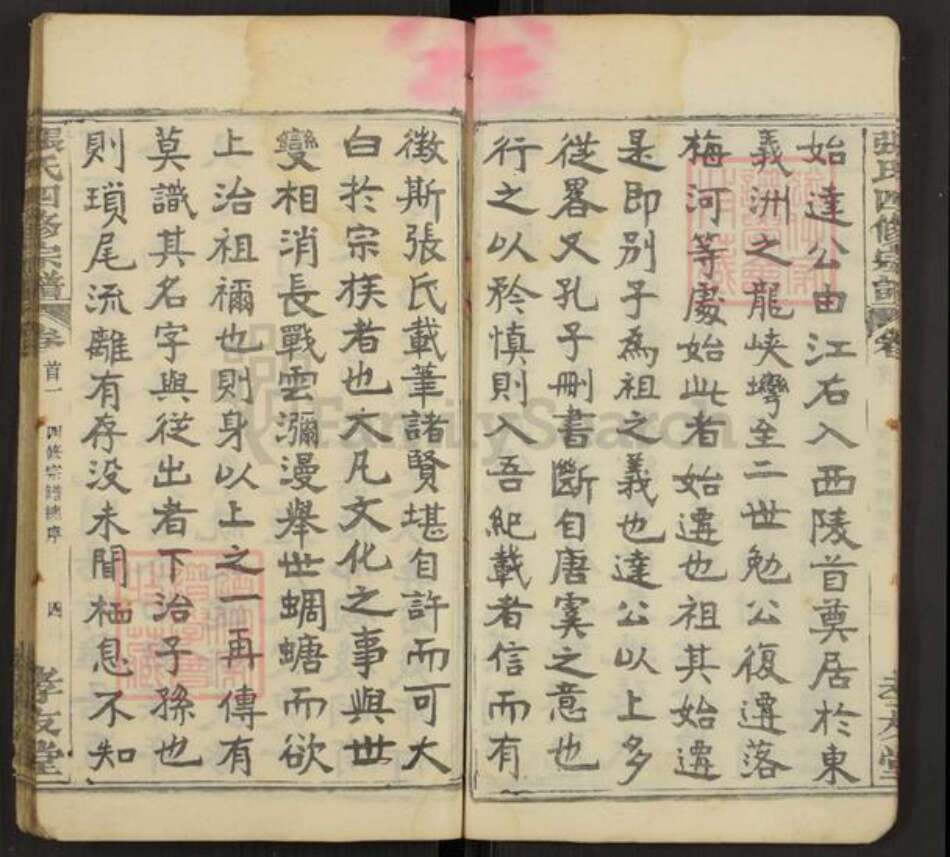 始達公由江右入西陵首奠居於東
義洲之龍峽壪至二世勉公復遷落
梅河等處始此者始遷也祖其始遷
是即別子為祖之義也達公以上多
從畧又孔子刪書斷自唐虞之意也
行之以矜慎則入吾紀載者信而有
徵斯張氏載筆諸賢堪自許而可大
白於宗族者也大凡文化之事與世
變相消長戰雲瀰漫舉世蜩螗而欲
上治祖禰也則身以上之一再傳有
莫識其名字與從出者下治子孫也
則瑣尾流離有存没未聞栖息不知
張氏四修宗譜 卷首一 四修宗譜總序 四 孝友堂
FamilySearch